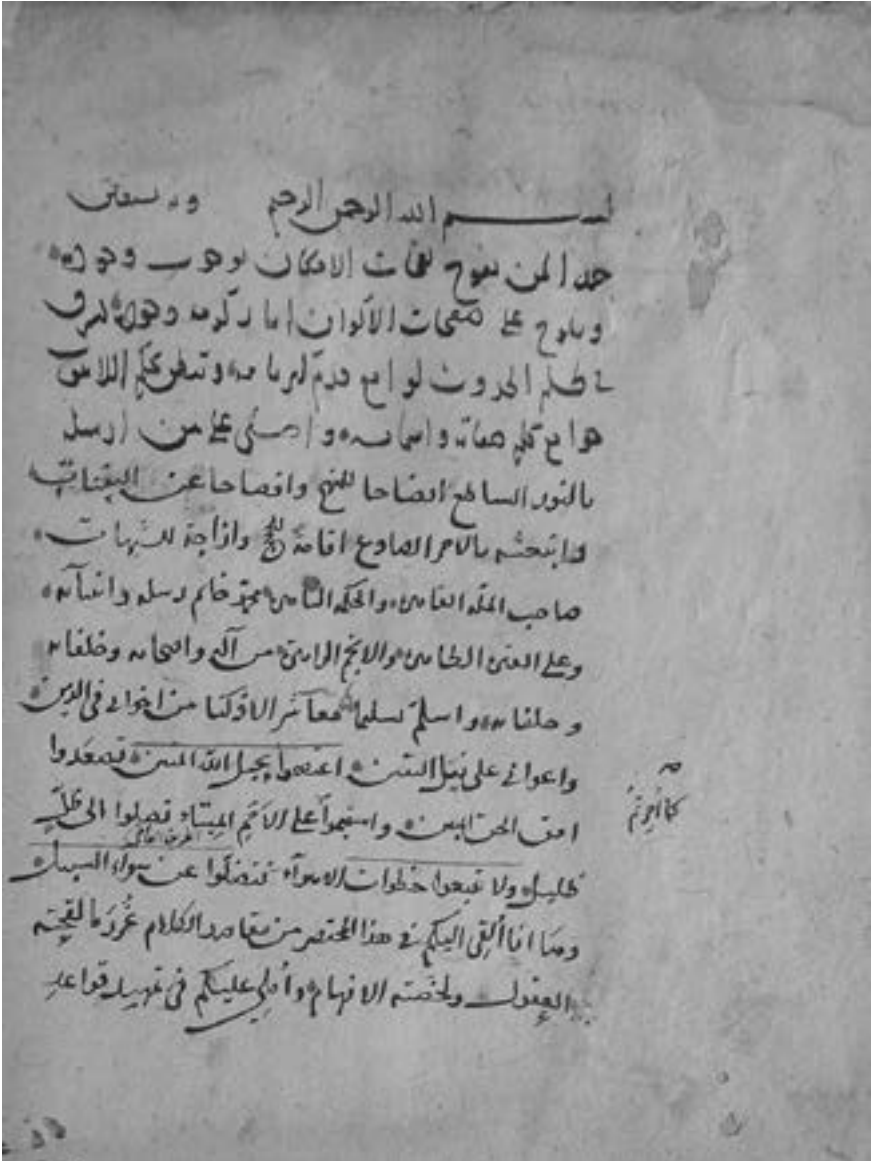 بسم الله الرحمن الرحيم وبه نستعين
حمدا لمن تفوح نفحات الامكان بوجوب وجوده
ويلوح على صفحات الاكوان اثار كرمه وجوده تشرق
في ظلم الحدوث لوامع قدم كبريائه وتنطق بحكم اللاهوت
جوامع كلم صفاته واسمائه واصلي على من ارسل
بالنور الساطع ايضاحا للنهج وافصاحا عن البينات
وابتعثه بالامر الصادع اقامة للحجج وازاحة للشبهات
صاحب الملة القاهرة والحكمة محمد خاتم رسله وانبيائه
وعلى العترة الطاهرة والانجم الزاهرة من آله واصحابه وخلفائه
وحلفائه واسلم تسليما معاشر الاذكيا من اخواني في الدين
واعواني على نيل اليقين اعتصموا بحبل الله المتين تصعدوا
افق الحق المبين واستقيموا على الامم الميتاء تصلوا الى ظل
كما أمرتم
الطريق العامر
ظليل ولا تتبعوا خطوات الاهواء فتضلوا عن سواء السبيل
وها انا ألقي اليكم في هذا المختصر من مقاصد الكلام غرر ما لقحته
العقول ولخصته الافهام وأملي عليكم في تمهيد قواعد